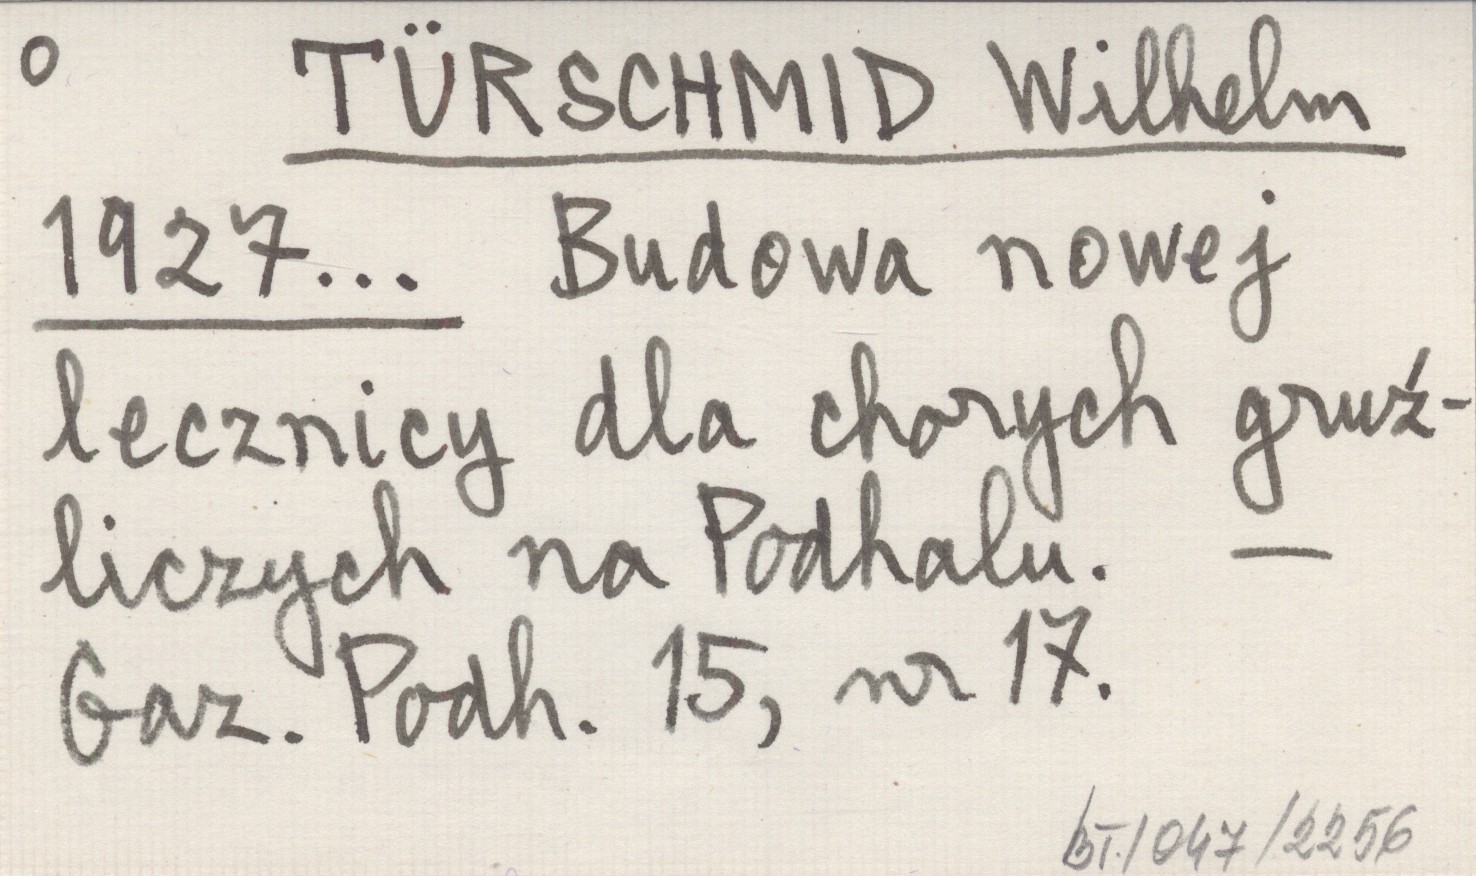 o TÜRSCHMID Wilhelm
1927... Budowa nowej
lecznicy dla chorych gruź-
liczych na Podhalu. —
Gaz. Podh. 15, nr 17.
BT/047/2256